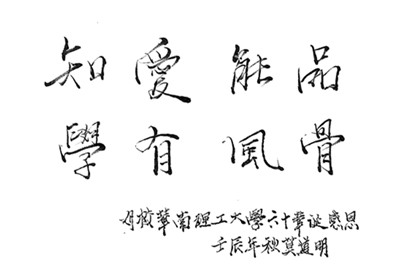 知愛能品
學有風骨
母校華南理工大學六十華誕感恩
壬辰年秋莫道明